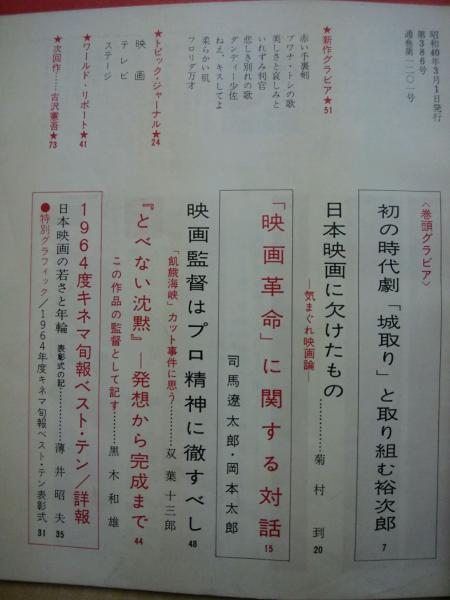 〈巻頭グラビア〉
初の時代劇「城取り」と取り組む裕次郎 7
日本映画に欠けたもの
―気まぐれ映画論― 菊村到 20
「映画革命」に関する対話 15
司馬遼太郎・岡本太郎
映画監督はプロ精神に徹すべし 48
「飢餓海峡」カット事件に思う 双葉十三郎
『とべない沈黙』―発想から完成まで 44
この作品の監督として記す 黒木和雄
1964度キネマ旬報ベスト・テン/詳報
日本映画の若さと年輪 表彰式の記 薄井昭夫 35
●特別グラフィック/1964年度キネマ旬報ベスト・テン表彰式 31
昭和40年3月1日発行
第386号
通巻第一二〇一号
★新作グラビア★51
赤い手裏剣
ブワナ・トシの歌
美しさと哀しみと
いれずみ判官
悲しき別れの歌
ダンディー少佐
ねえ、キスしてよ
柔らかい肌
フロリダ万才
★トピック・ジャーナル★24
映画
テレビ
ステージ
★ワールド・リポート★41
★次回作……古沢憲吾★73